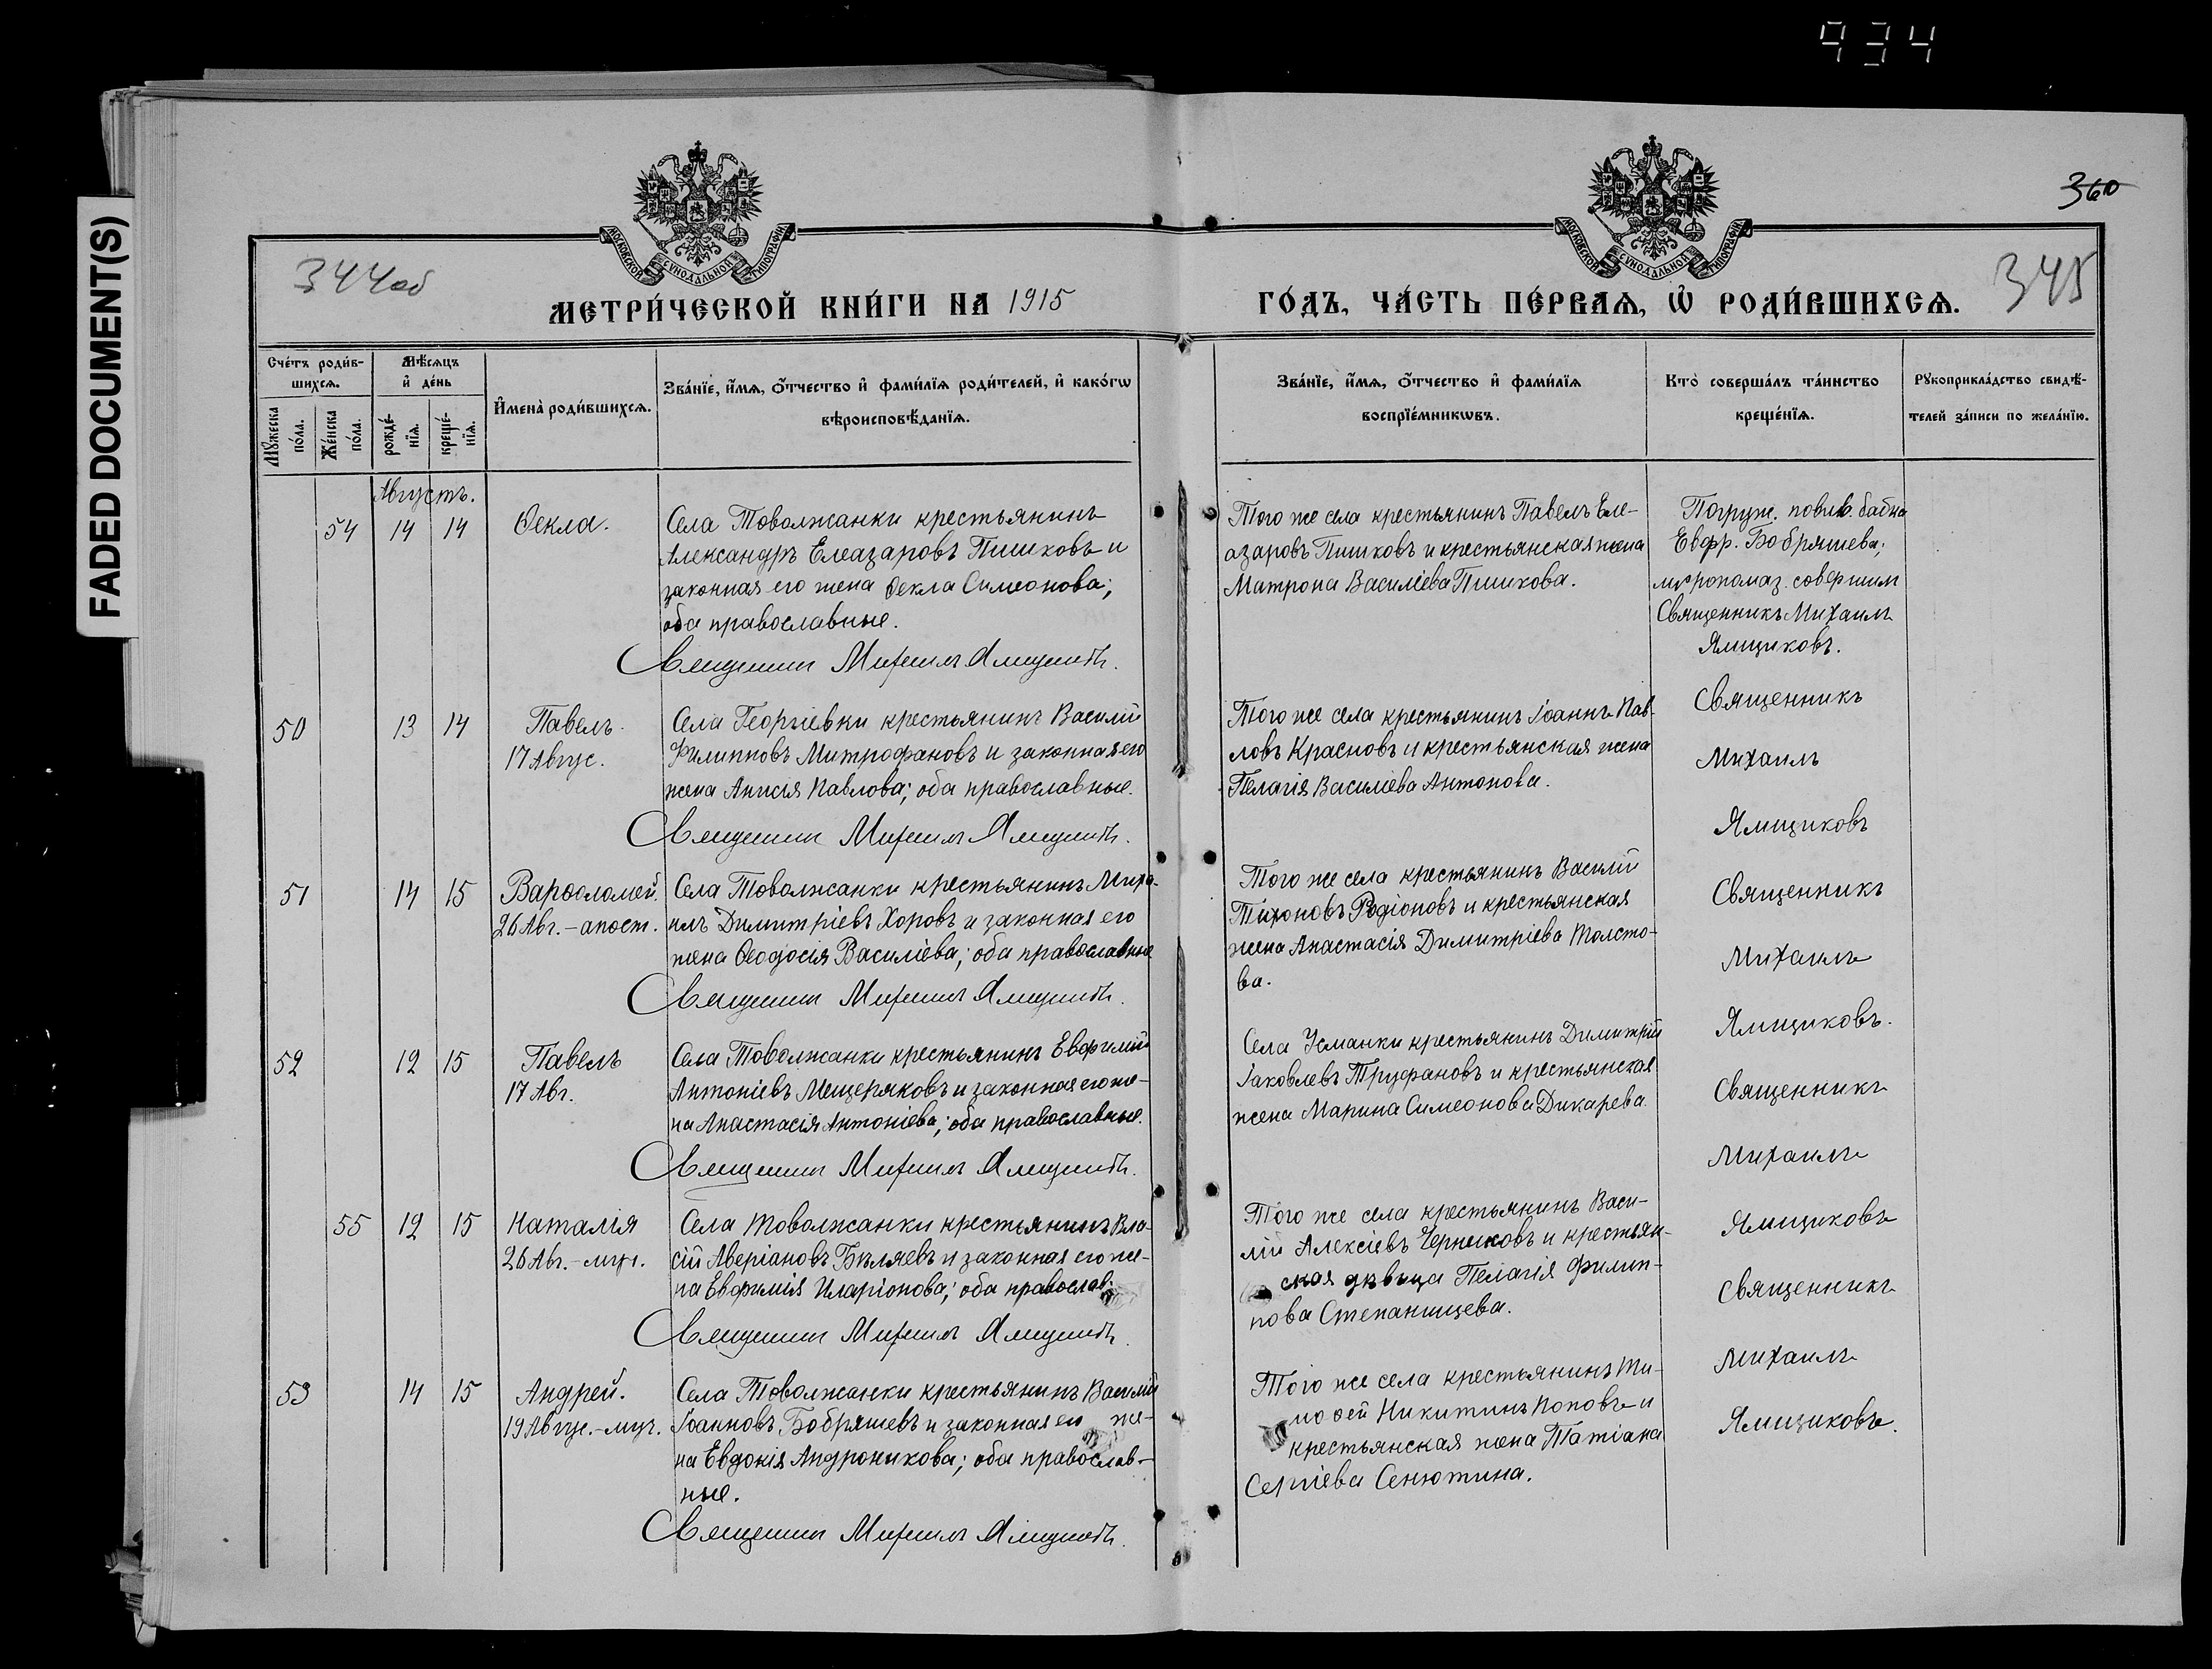 934
FADED DOCUMENT(S)
360
344об
345
МОСКОВСКОЙ СѴНОДАЛЬНОЙ ТИПОГРАФІИ
МОСКОВСКОЙ СѴНОДАЛЬНОЙ ТИПОГРАФІИ
МЕТРИ́ЧЕСКОЙ КНИ́ГИ НА 1915
ГО́ДЪ, ЧА́СТЬ ПЕ́РВАѦ, Ѡ҆ РОДИ́ВШИХСѦ.
Сче́тъ роди́в-
шихсѧ.
Мѣ́сѧцъ
и҆ де́нь
Мꙋ́жеска
по́ла.
Же́нска
по́ла.
рожде́-
нїѧ.
креще́-
нїѧ.
И҆мена̀ роди́вшихсѧ.
Зва́нїе, и҆́мѧ, ѻ҆́тчество и҆ фами́лїѧ роди́телей, и҆ како́гѡ
вѣроисповѣ́данїѧ.
Зва́нїе, и҆́мѧ, ѻ҆́тчество и҆ фами́лїѧ
воспрїе́мникѡвъ.
Кто̀ соверша́лъ та́инство
креще́нїѧ.
Рꙋкоприкла́дство свидѣ́-
телей за́писи по жела́нїю.
Августъ.
54 14 14 Ѳекла.
Села Товолжанки крестьянинъ
Александръ Елеазаровъ Пишковъ и
законная его жена Ѳекла Симеонова;
оба православные.
Священникъ Михаилъ Ямщиковъ.
Того же села крестьянинъ Павелъ Еле-
азаровъ Пишковъ и крестьянская жена
Матрона Василіева Пишкова.
Погруж. повив. бабка
Евфр. Бобряшева;
мѵропомаз. совершил
Священникъ Михаилъ
Ямщиковъ.
50 13 14 Павелъ.
17 Авгус.
Села Георгіевки крестьянинъ Василій
Филипповъ Митрофановъ и законная его
жена Анисія Павлова; оба православные.
Священникъ Михаилъ Ямщиковъ.
Того же села крестьянинъ Іоаннъ Пав-
ловъ Красновъ и крестьянская жена
Пелагія Василіева Антонова.
Священникъ
Михаилъ
Ямщиковъ
51 14 15 Варѳоломей.
26 Авг. - апост.
Села Товолжанки крестьянинъ Миха-
илъ Димитріевъ Хоровъ и законная его
жена Ѳеодосія Василіева; оба православные
Священникъ Михаилъ Ямщиковъ.
Того же села крестьянинъ Василій
Тихоновъ Родіоновъ и крестьянская
жена Анастасія Димитріева Толсто-
ва.
Священникъ
Михаилъ
Ямщиковъ.
52 12 15 Павелъ
17 Авг.
Села Товолжанки крестьянинъ Евфимій
Антоніевъ Мещеряковъ и законная его же-
на Анастасія Антоніева; оба православные.
Священникъ Михаилъ Ямщиковъ.
Села Усманки крестьянинъ Димитрій
Іаковлевъ Труфановъ и крестьянская
жена Марина Симеонова Дикарева.
Священникъ
Михаилъ
Ямщиковъ
55 12 15 Наталія
26 Авг. - муч.
Села Товолжанки крестьянинъ Вла-
сій Аверіановъ Бѣляевъ и законная его же-
на Евфимія Иларіонова; оба православ.
Священникъ Михаилъ Ямщиковъ.
Того же села крестьянинъ Васи-
лій Алексіевъ Черниковъ и крестьян-
ская дѣвица Пелагія Филип-
пова Степанищева.
Священникъ
Михаилъ
Ямщиковъ.
53 14 15 Андрей.
19 Авгус. - муч.
Села Товолжанки крестьянинъ Василій
Іоанновъ Бобряшевъ и законная его же-
на Евдокія Андроникова; оба православ-
ные.
Священникъ Михаилъ Ямщиковъ.
Того же села крестьянинъ Ти-
моѳей Никитинъ Поповъ и
крестьянская жена Татіана
Сергіева Сенютина.